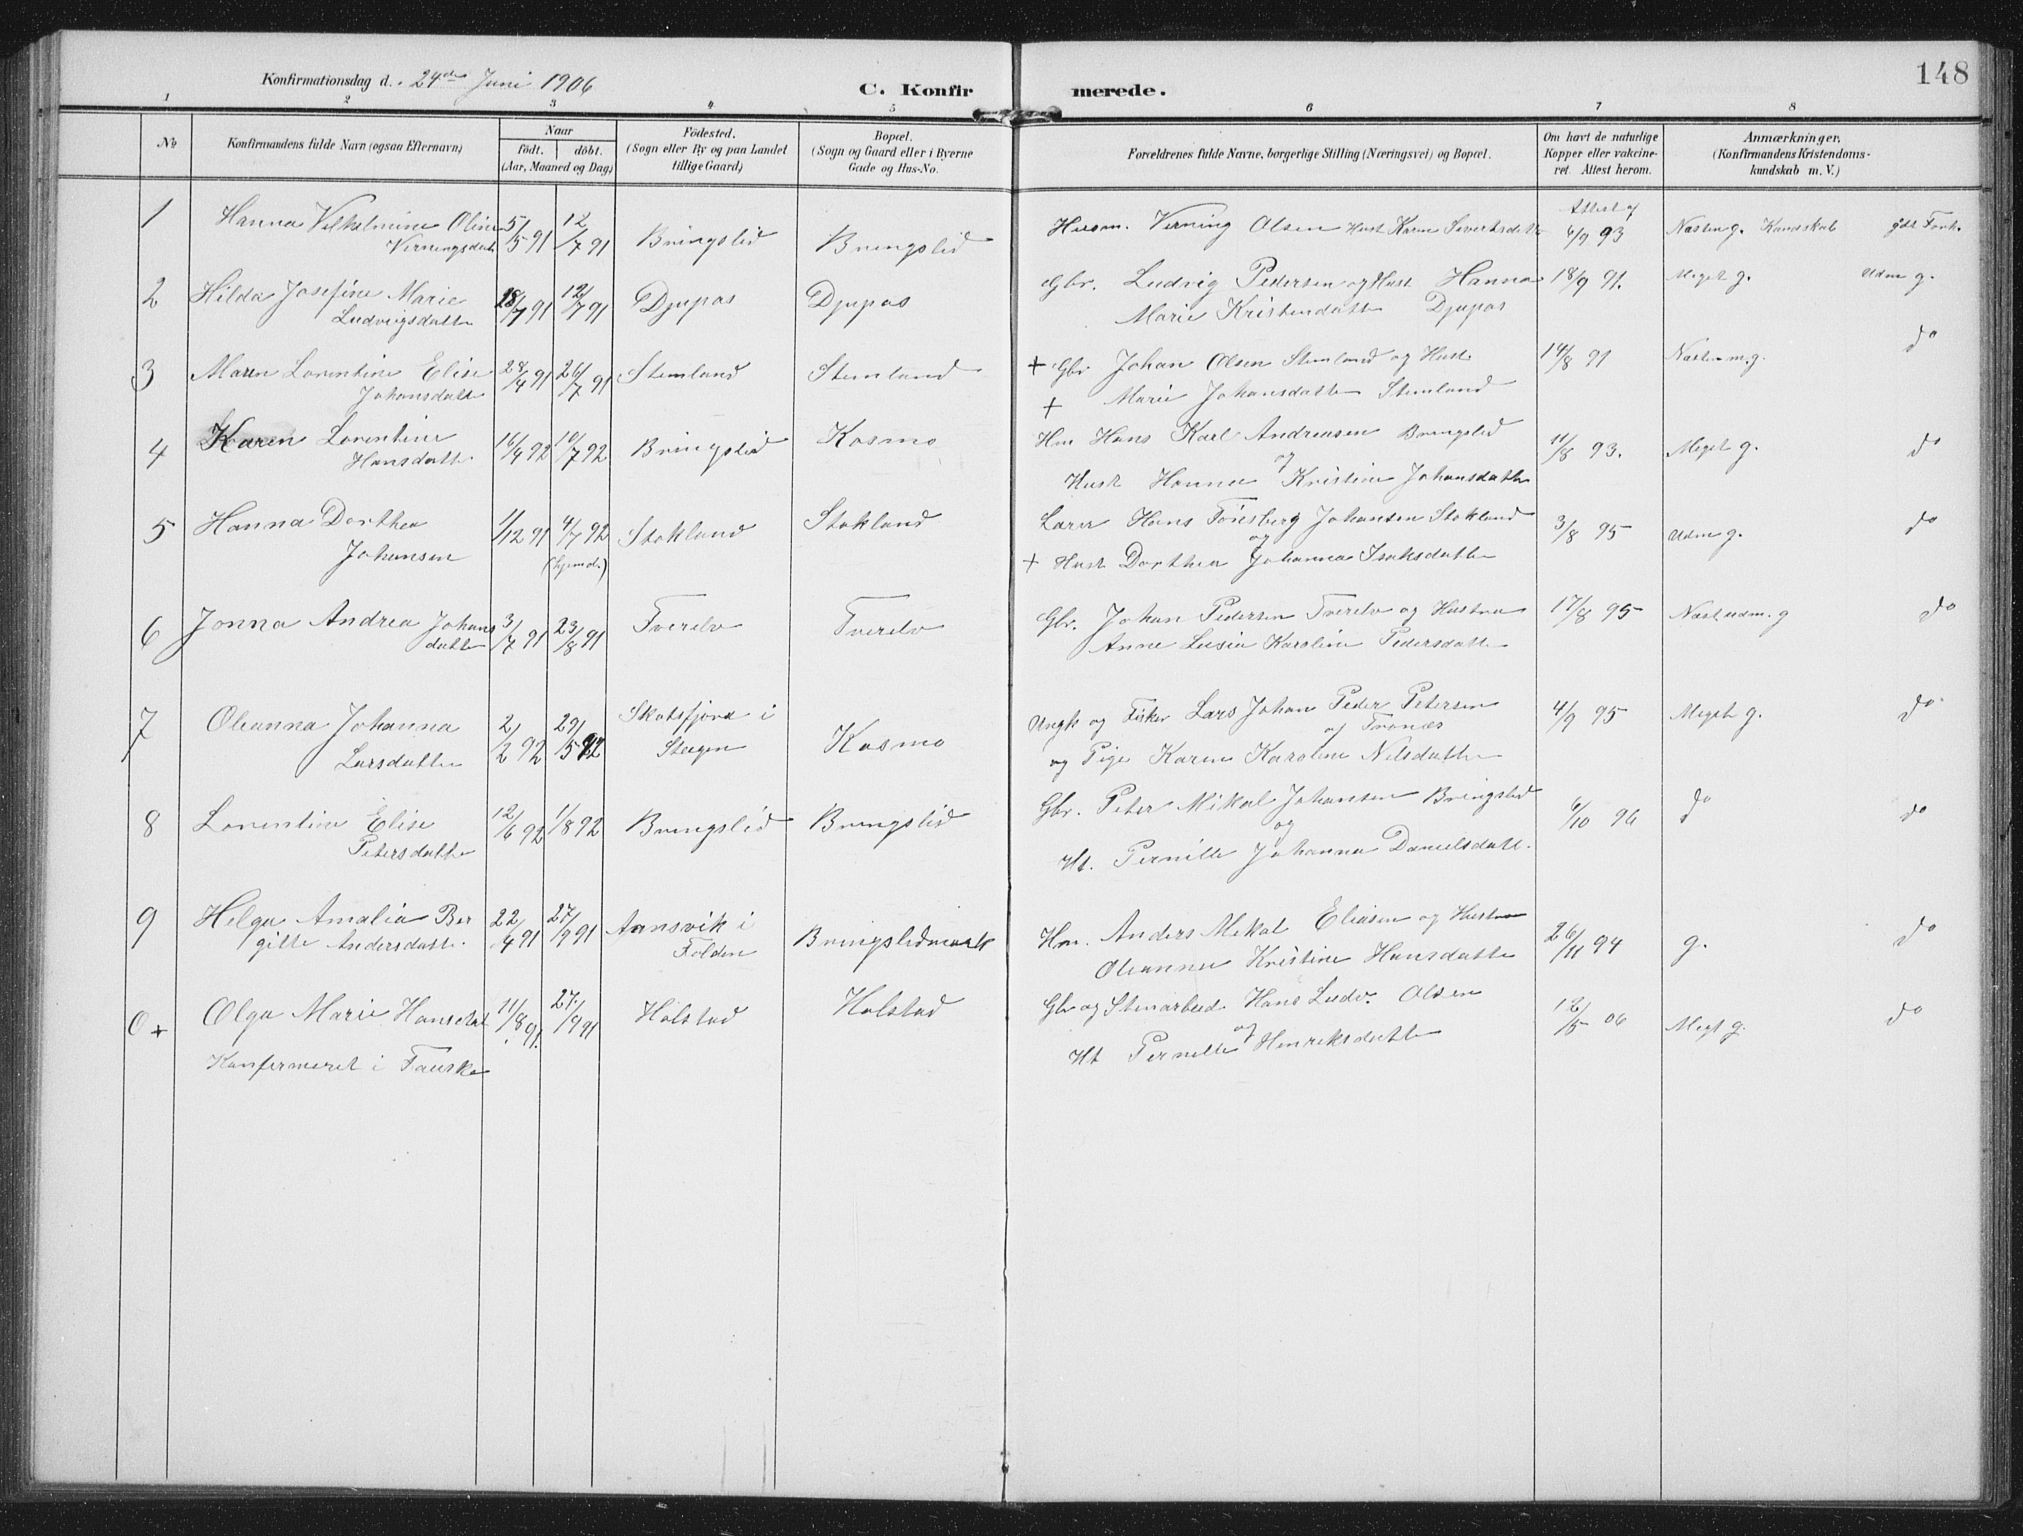 148
Konfirmationsdag d. 24de Juni 1906
C. Konfir merede.
1 2 3 4 5 6 7 8
No
Konfirmandens fulde Navn (ogsaa Efternavn)
Naar
født. døbt.
(Aar, Maaned og Dag)
Födested.
(Sogn eller By og paa Landet
tillige Gaard)
Bopæl.
(Sogn og Gaard eller i Byerne
Gade og Hus-No.
Forældrenes fulde Navne, borgerlige Stilling (Næringsvei) og Bopæl.
Om havt de naturlige
Kopper eller vakcine-
ret. Attest herom.
Anmærkninger,
(Konfirmandens Kristendoms-
kundskab m. V.)
1 Hanna Vilhelmine Oline 5/5 91 12/7 91 Bringslid Bringslid Husm. Virning Olsen Hust Karen Sivertsdatt Attest af 4/9 93 Næsten g. Kundskab gdt Forh.
Virningsdatt
2 Hilda Josefine Marie 18/7 91 12/7 91 Djupos Djupos Gbr. Ludvig Pedersen og Hust Hanna 18/9 91. Meget g. Udm g.
Ludvigsdatt Marie Kristensdatt Djupos
3 Maren Lorentine Elise 28/4 91 26/7 91 Stemland Stemland + Gbr Johan Olsen Stemland og Hust 14/8 91 Næsten m.g. do
Johansdatt + Marie Johansdatter Stemland
4 Karen Lorentine 16/4 92 10/7 92 Bringslid Kosmo Hm Hans Karl Andreasen Bringslid 11/8 93. Meget g. do
Hansdatt. og
Hust Hanna Kristine Johansdatter
5 Hanna Dorthea 1/12 91 4/7 92 Stokland Stokland Lærer Hans Tönsberg Johansen Stokland 3/8 95 Udm g. do
Johansen (hjemd.) og
+ Hust Dorthea Johanna Isaksdatter
6 Jonna Andrea Johans 3/7 91 23/8 91 Tverelv Tverelv Gbr. Johan Pedersen Tverelv og Hustru 17/8 95 Næst udm. g do
datter Anne Lusia Karoline Pedersdatt
7 Oleanna Johanna 2/2 92 29/5 92 Skotsfjord i Kosmo Ungk og Fisker Lars Johan Peder Petersen 4/9 95 Meget g. do
Larsdatter Steigen af Tranæs
og Pige Karen Karoline Nilsdatter
8 Lorentine Elise 12/6 92 1/8 92 Bringslid Bringslid Gbr. Peter Mikal Johansen Bringslid 6/10 96 do do
Petersdatter og
Ht. Pernille Johanna Danielsdatt.
9 Helga Amalia Ber 22/4 91 27/9 91 Aansvik i Bringslidmark Hm. Anders Mikal Eliasen og Hustru 26/11 94 g. do
gitte Andersdatt. Folden Oleanna Kristine Hansdatter
0+ Olga Marie Hansdat 11/8 91. 27/9 91 Holstad Holstad Gbr og Stenarbeid. Hans Ludv. Olsen 12/5 06 Megt g. do
og
Ht Pernille Henriksdatter
Konfermeret i Fauske